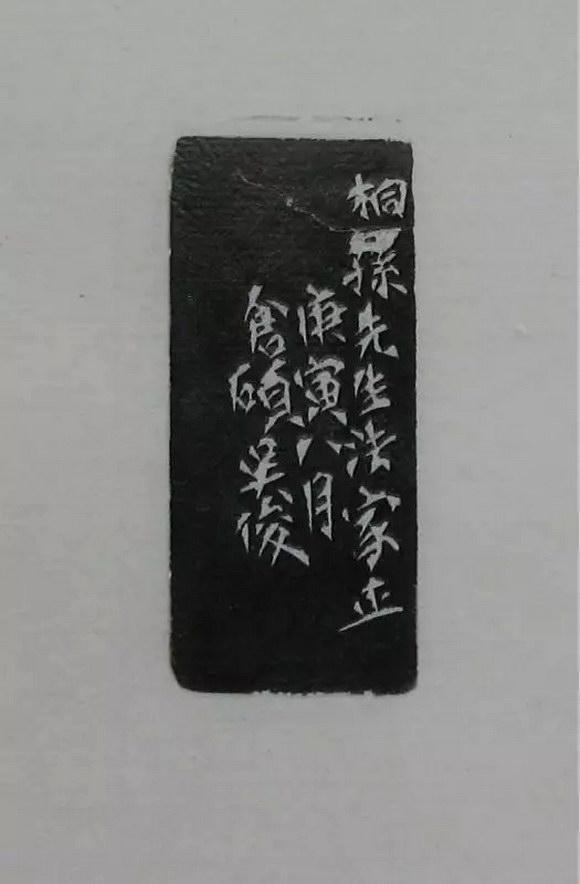 桐孫先生法家正
庚寅八月
倉碩吳俊